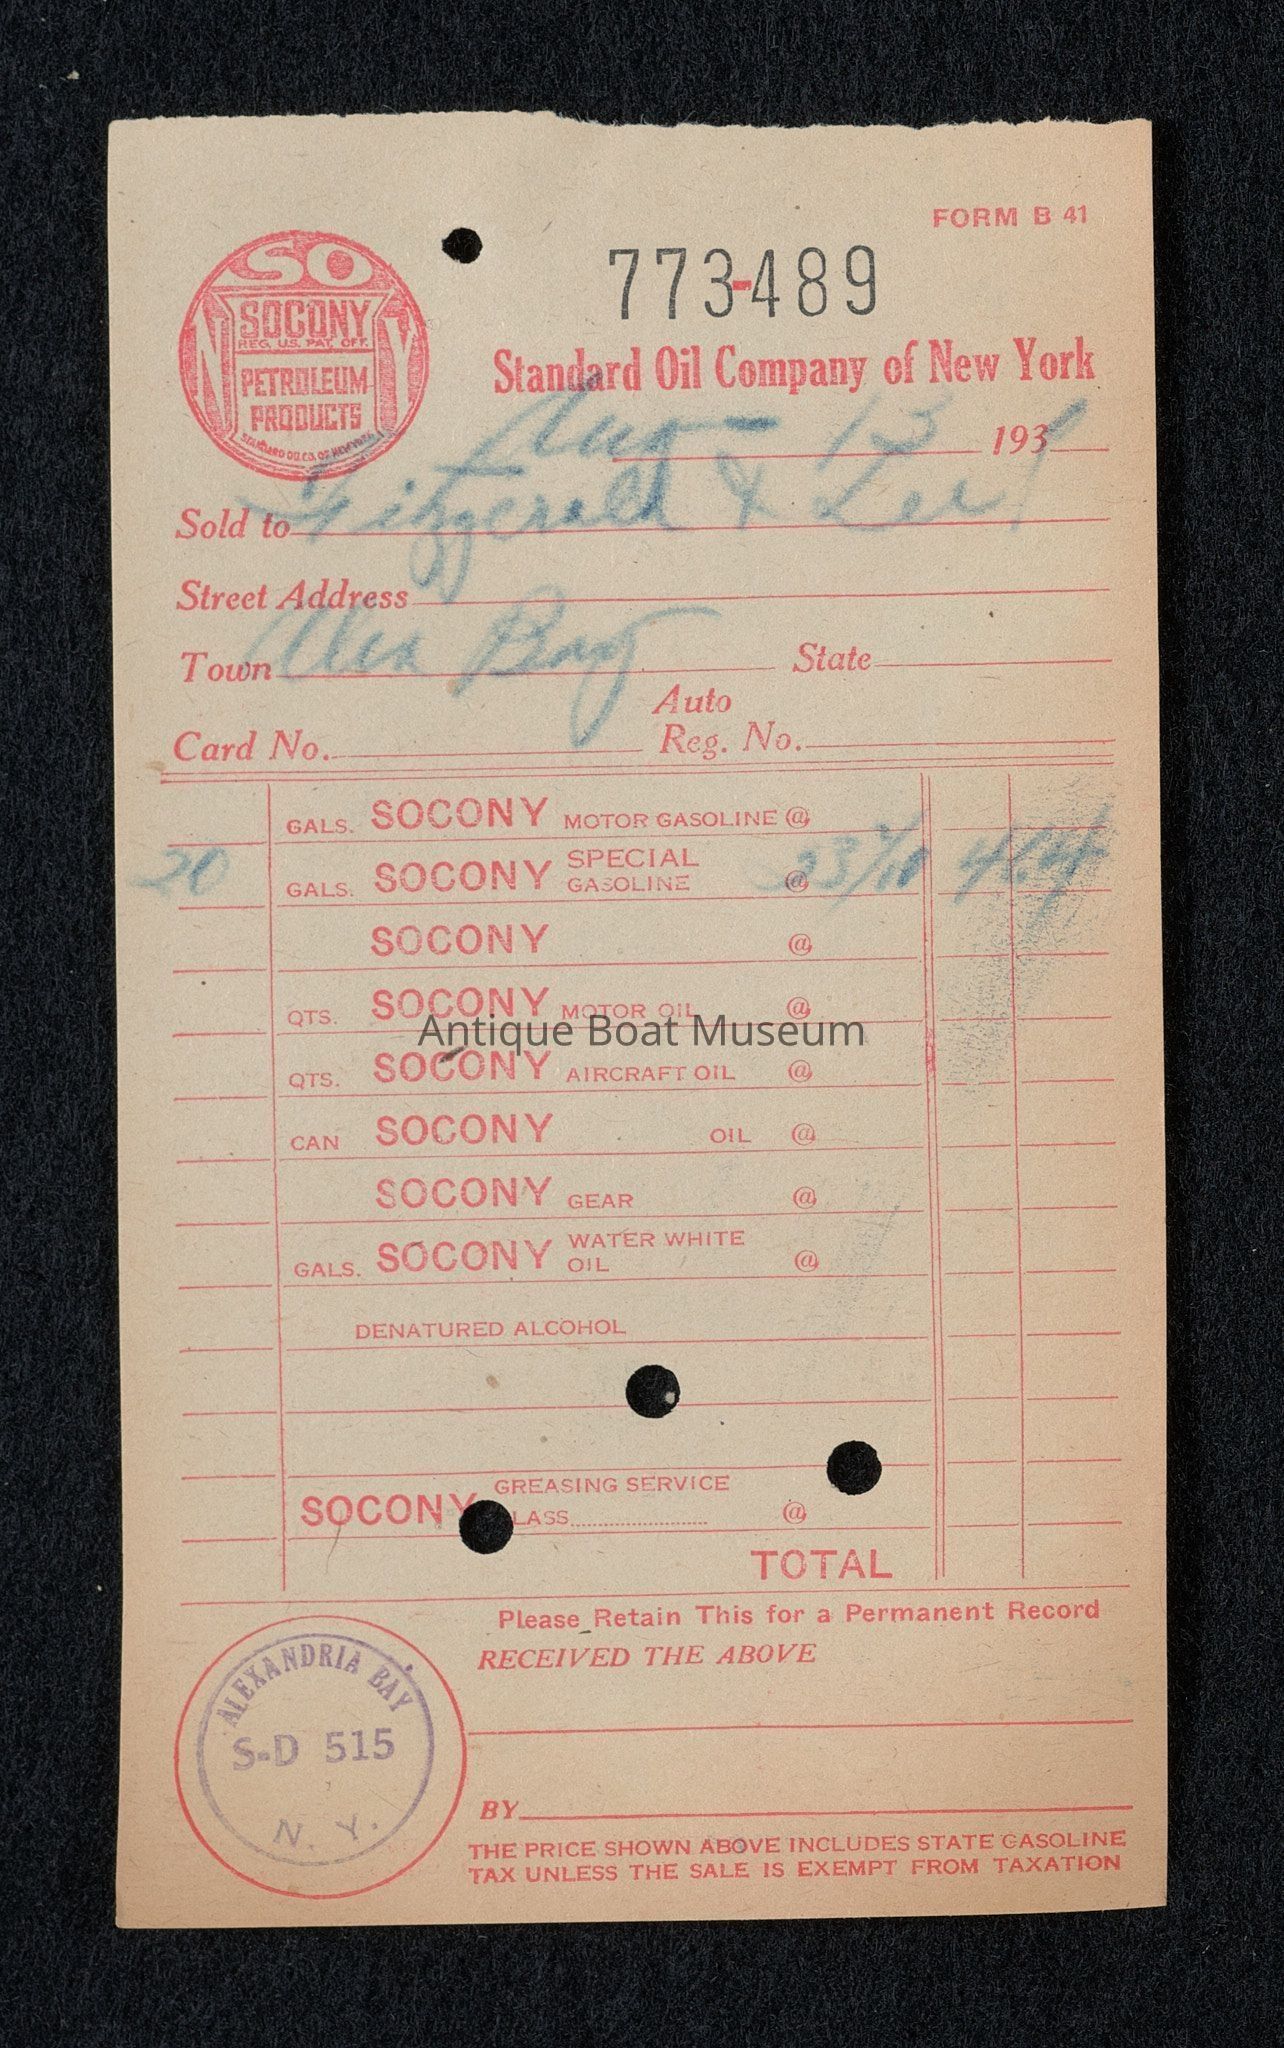 FORM B 41
SO
NY
SOCONY
REG. U.S. PAT. OFF.
PETROLEUM
PRODUCTS
STANDARD OIL CO. OF NEW YORK
773-489
Standard Oil Company of New York
Aug 13 1931
Sold to Fitzgerald & Lee
Street Address
Town Alex Bay State
Auto
Card No. Reg. No.
GALS. SOCONY MOTOR GASOLINE @
20 GALS. SOCONY SPECIAL GASOLINE @ 23 7/10
SOCONY @
QTS. SOCONY MOTOR OIL @
Antique Boat Museum
QTS. SOCONY AIRCRAFT OIL @
CAN SOCONY OIL @
SOCONY GEAR @
GALS. SOCONY WATER WHITE OIL @
DENATURED ALCOHOL
SOCONY GREASING SERVICE
LASS @
TOTAL
Please Retain This for a Permanent Record
RECEIVED THE ABOVE
ALEXANDRIA BAY
S-D 515
N. Y.
BY
THE PRICE SHOWN ABOVE INCLUDES STATE GASOLINE
TAX UNLESS THE SALE IS EXEMPT FROM TAXATION